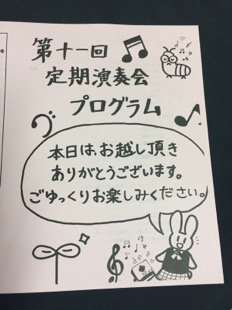 第十一回
定期演奏会
プログラム
本日は、お越し頂き
ありがとうございます。
ごゆっくりお楽しみください。